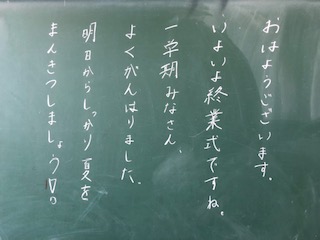 おはようございます。
いよいよ終業式ですね。
一学期みなさん、
よくがんばりました。
明日からしっかり夏を
まんきつしましょう!